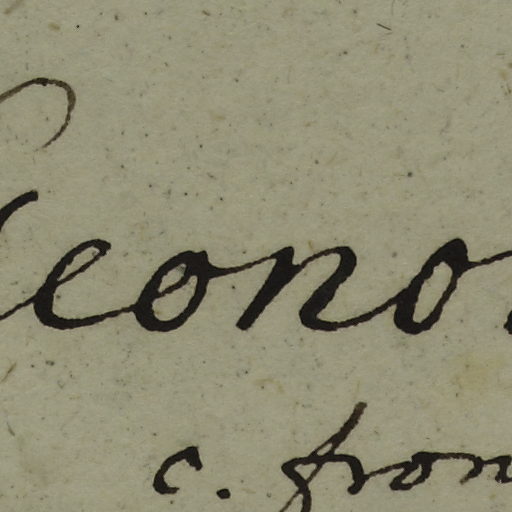 eono
c. fron